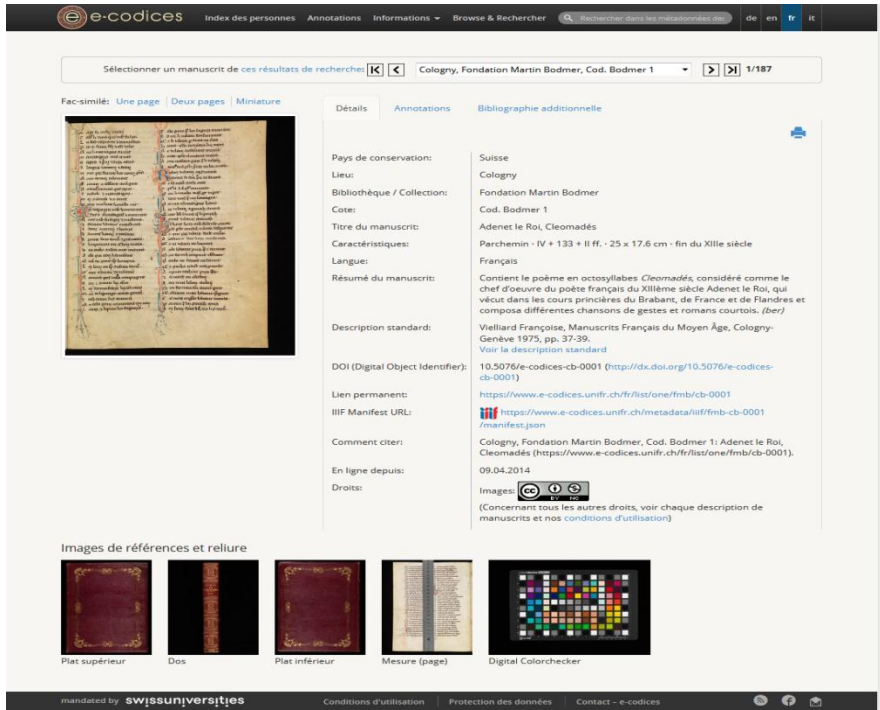 e-codices
Index des personnes Annotations Informations Browse & Rechercher Rechercher dans les métadonnées des de en fr it
Sélectionner un manuscrit de ces résultats de recherche: Cologny, Fondation Martin Bodmer, Cod. Bodmer 1 1/187
Fac-similé: Une page Deux pages Miniature
Détails Annotations Bibliographie additionnelle
Pays de conservation: Suisse
Lieu: Cologny
Bibliothèque / Collection: Fondation Martin Bodmer
Cote: Cod. Bodmer 1
Titre du manuscrit: Adenet le Roi, Cleomadés
Caractéristiques: Parchemin · IV + 133 + II ff. · 25 x 17.6 cm · fin du XIIIe siècle
Langue: Français
Résumé du manuscrit: Contient le poème en octosyllabes Cleomadés, considéré comme le
chef d'oeuvre du poète français du XIIIème siècle Adenet le Roi, qui
vécut dans les cours princières du Brabant, de France et de Flandres et
composa différentes chansons de gestes et romans courtois. (ber)
Description standard: Vielliard Françoise, Manuscrits Français du Moyen Âge, Cologny-
Genève 1975, pp. 37-39.
Voir la description standard
DOI (Digital Object Identifier): 10.5076/e-codices-cb-0001 (http://dx.doi.org/10.5076/e-codices-
cb-0001)
Lien permanent: https://www.e-codices.unifr.ch/fr/list/one/fmb/cb-0001
IIIF Manifest URL: iiif https://www.e-codices.unifr.ch/metadata/iiif/fmb-cb-0001
/manifest.json
Comment citer: Cologny, Fondation Martin Bodmer, Cod. Bodmer 1: Adenet le Roi,
Cleomadés (https://www.e-codices.unifr.ch/fr/list/one/fmb/cb-0001).
En ligne depuis: 09.04.2014
Droits: Images: cc BY NC
(Concernant tous les autres droits, voir chaque description de
manuscrits et nos conditions d'utilisation)
Images de références et reliure
Plat supérieur Dos Plat inférieur Mesure (page) Digital Colorchecker
mandated by swissuniversities Conditions d'utilisation Protection des données Contact – e-codices